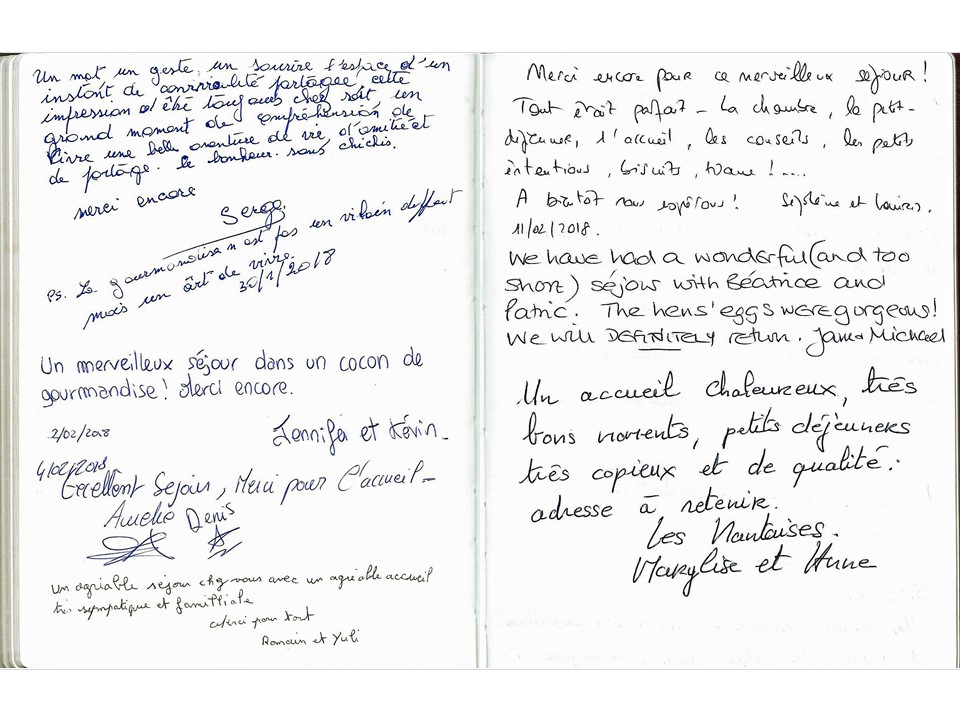 Un mot un geste, un sourire l'espace d'un
instant de convivialité partagée, cette
impression d'être toujours chez soit, un
grand moment de compréhension de
Vivre une belle aventure de vie, d'amitié et
de partage. le bonheur. sans chichis.
merci encore
Serge.
Ps. La gourmandise n'est pas un vilain deffaut
mais un ârt de vivre.
30/1/2018
Un merveilleux séjour dans un cocon de
gourmandise! Merci encore.
2/02/2018
Jennifer et Kévin.
4/02/2018
Excellent Sejour, Merci pour l'accueil -
Amelie Denis
Un agriable séjour chez vous avec un agriable accueil
très sympatique et familliale
Merci pour tout
Romain et Yuli
Merci encore pour ce merveilleux séjour!
Tout était parfait - La chambre, le petit-
déjeuner, l'accueil, les conseils, les petits
intentions, biscuits, tisane!....
A bientôt nous espérons! et
11/02/2018.
We have had a wonderful (and too
short) séjour with Béatrice and
Patric. The hens' eggs were gorgeous!
We will DEFINITELY return. Jan & Michael
Un accueil chaleureux, très
bons moments, petits déjeuners
très copieux et de qualité.
adresse à retenir.
Les Nantaises.
Marylise et Anne